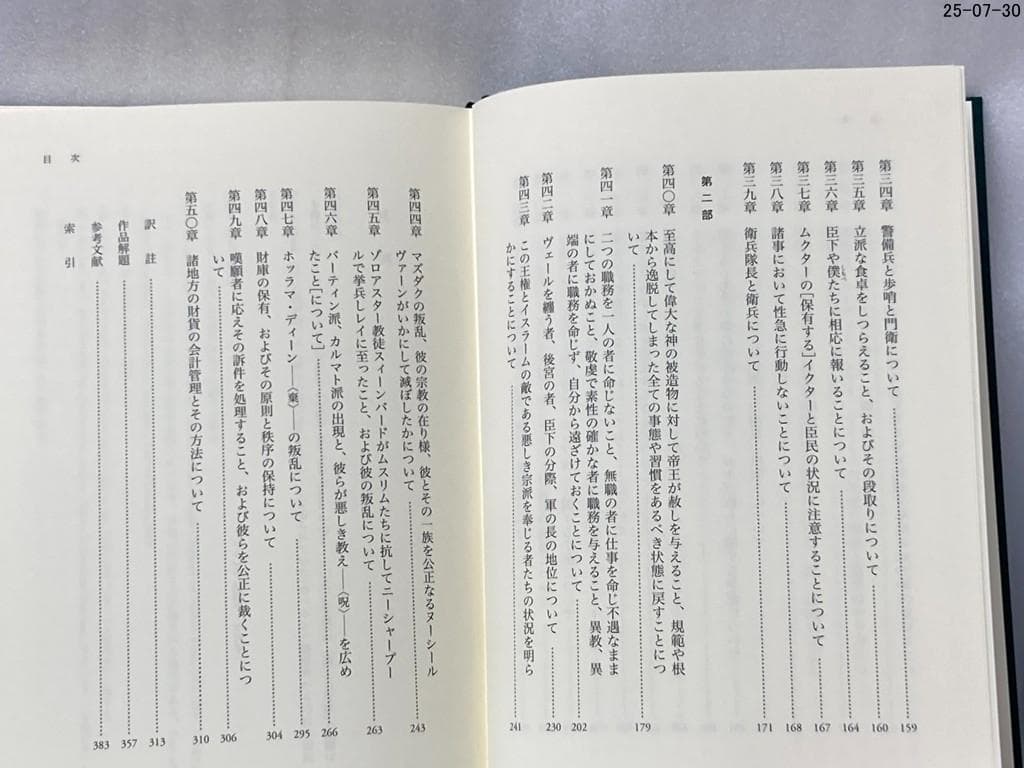 25-07-30
第三四章 警備兵と歩哨と門衛について 159
第三五章 立派な食卓をしつらえること、およびその段取りについて 160
第三六章 臣下や僕たちに相応に報いることについて 164
第三七章 ムクターの[保有する]イクターと臣民の状況に注意することについて 167
第三八章 諸事において性急に行動しないことについて 168
第三九章 衛兵隊長と衛兵について 171
第二部
第四〇章 至高にして偉大な神の被造物に対して帝王が赦しを与えること、規範や根
本から逸脱してしまった全ての事態や習慣をあるべき状態に戻すことにつ
いて 179
第四一章 二つの職務を一人の者に命じないこと、無職の者に仕事を命じ不遇なまま
にしておかぬこと、敬虔で素性の確かな者に職務を与えること、異教、異
端の者に職務を命じず、自分から遠ざけておくことについて 202
第四二章 ヴェールを纏う者、後宮の者、臣下の分際、軍の長の地位について 230
第四三章 この王権とイスラームの敵である悪しき宗派を奉じる者たちの状況を明ら
かにすることについて 241
目次
第四四章 マズダクの叛乱、彼の宗教の在り様、彼とその一族を公正なるヌーシール
ヴァーンがいかにして滅ぼしたかについて 243
第四五章 ゾロアスター教徒スィーンバードがムスリムたちに抗してニーシャープー
ルで挙兵しレイに至ったこと、および彼の叛乱について 263
第四六章 バーティン派、カルマト派の出現と、彼らが悪しき教え——〈呪〉——を広め
たこと[について] 266
第四七章 ホッラマ・ディーン——〈棄〉——の叛乱について 295
第四八章 財庫の保有、およびその原則と秩序の保持について 304
第四九章 嘆願者に応えその訴件を処理すること、および彼らを公正に裁くことにつ
いて 306
第五〇章 諸地方の財貨の会計管理とその方法について 310
訳註 313
作品解題 357
参考文献 383
索引